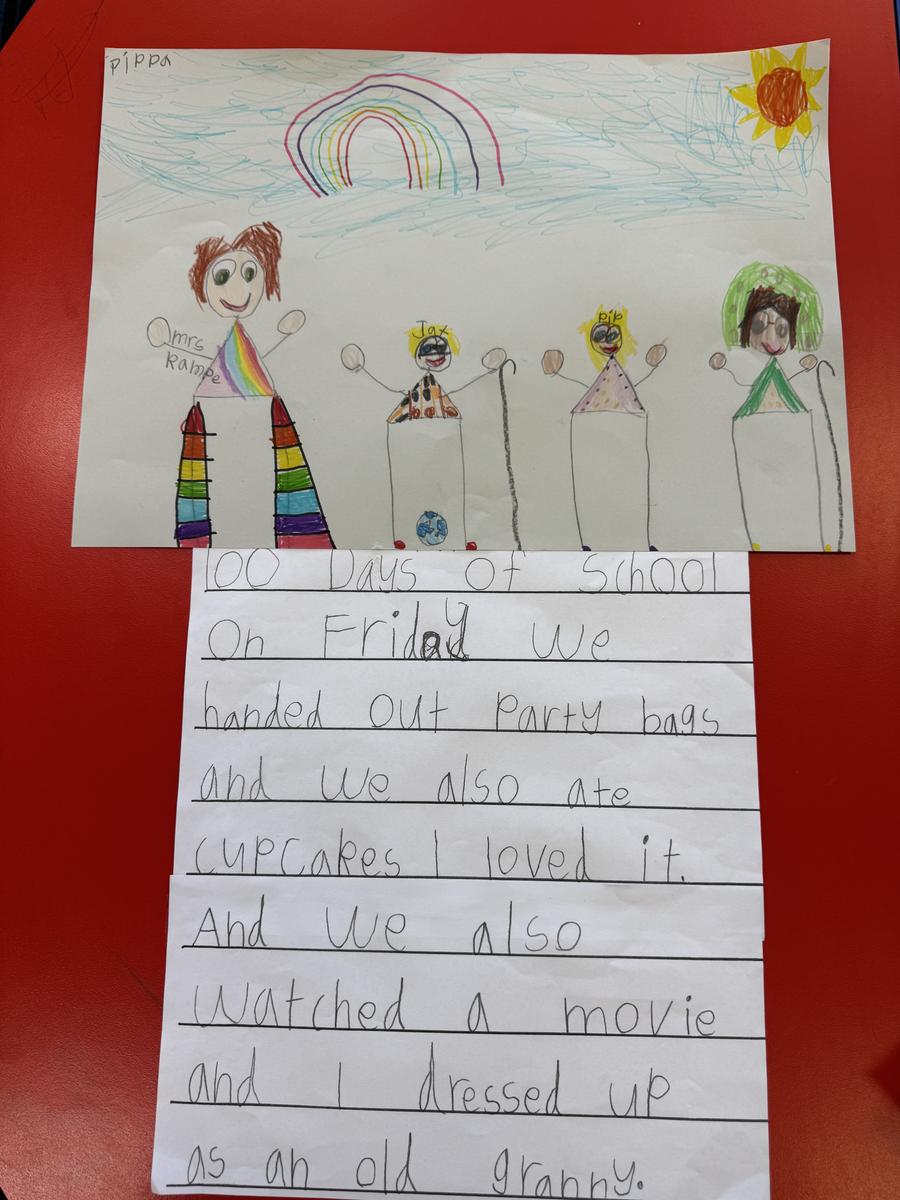 pippa
Jax
pip
mrs
Rampe
100 Days of School
On Friday we
handed out party bags
and we also ate
cupcakes I loved it.
And we also
watched a movie
and I dressed up
as an old granny.